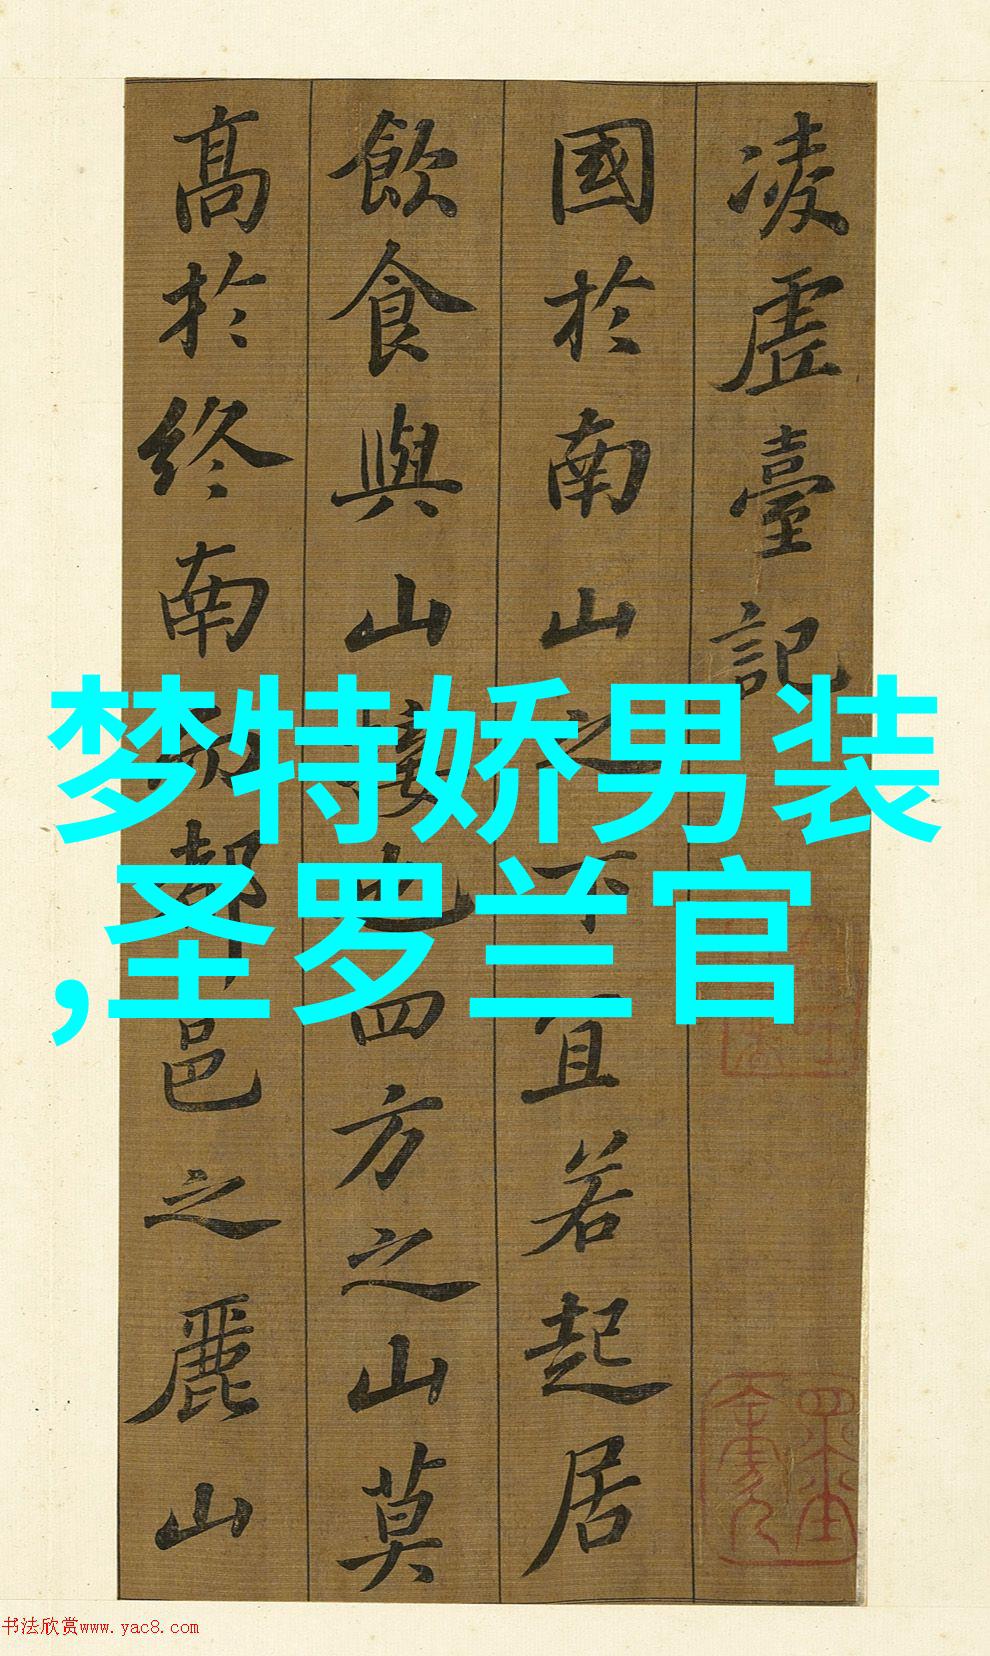 凌虛臺記
國於南山之下宜若起居
飲食與山接也四方之山莫
高於終南而都邑之麗山
梦特娇男装
,圣罗兰官
书法欣赏www.yac8.com